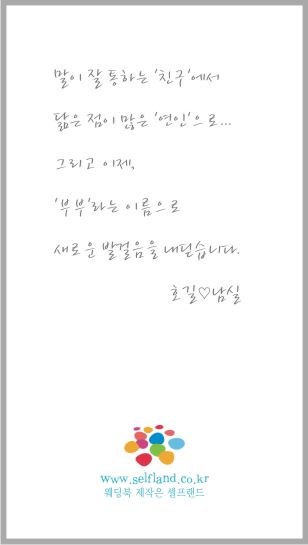 말이 잘 통하는 '친구'에서
닮은 점이 많은 '연인'으로...
그리고 이제,
'부부'라는 이름으로
새로운 발걸음을 내딛습니다.
호길♡남실
www.selfland.co.kr
웨딩북 제작은 셀프랜드